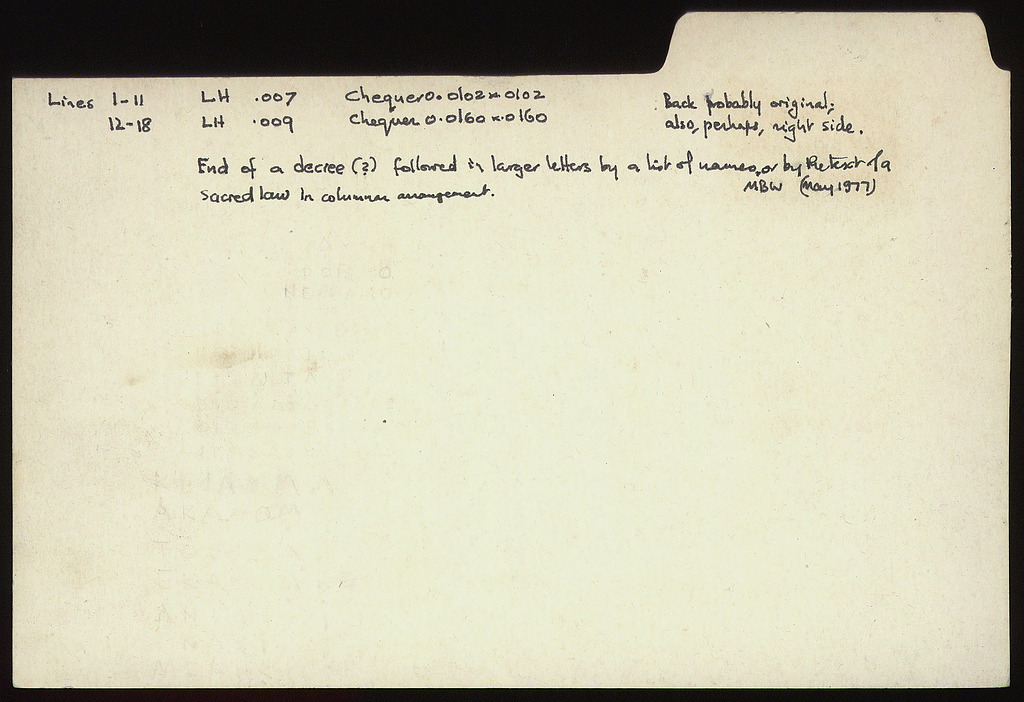 Lines 1-11 LH .007 Chequer 0.0102 x.0102 Back probably original;
12-18 LH .009 Chequer 0.0160 x.0160 also, perhaps, right side.
End of a decree (?) followed in larger letters by a list of names, or by the text of a
sacred law in columnar arrangement. MBW (May 1977)